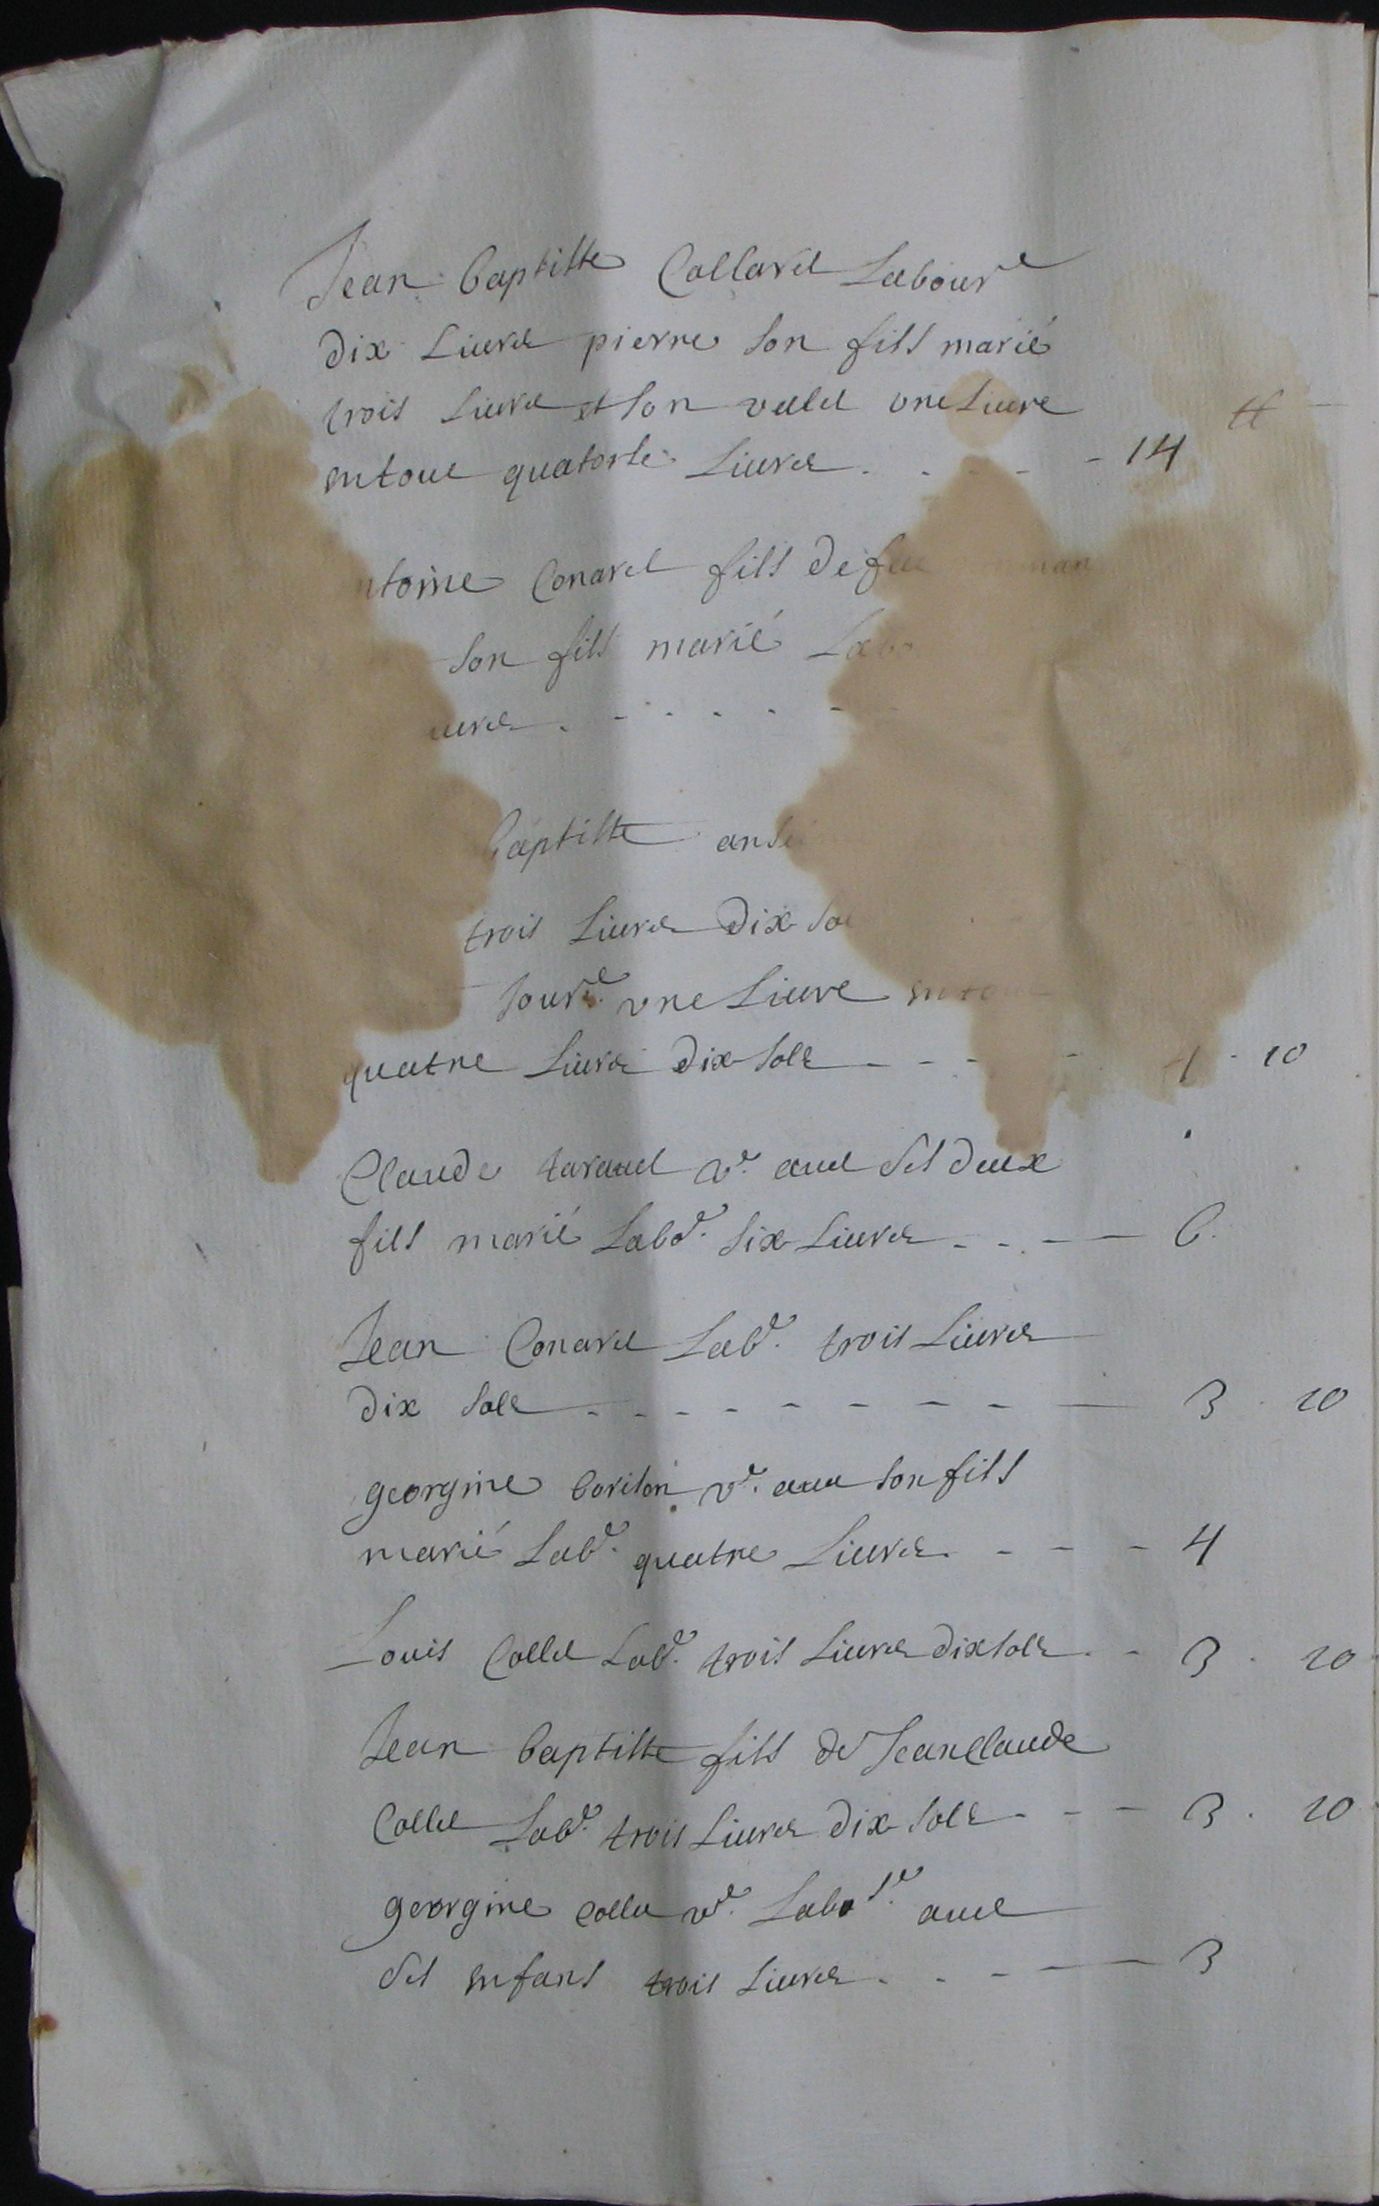 Jean baptiste Collard Labour.e
dix Livres pierre son fils marié
trois Livres et son valet une Livre
en tout quatorse Livres - - - - 14 ₶
ntoine Conard fils de feu
son fils marié Lab
ivres - - - - - -
baptiste
trois Livres dix so
jour.e une Livre en to
quatre Livres dix sols - - - - 4 - 10
Claude v.e avec ses deux
fils marié Lab.r six Livres - - - - 6.
Jean Conard Lab.r trois Livres
dix sols - - - - - - - - - 3 . 10
georgine v.e avec son fils
marié Lab.r quatre Livres - - - - 4
Louis Collet Lab.r trois Livres dix sols - - 3 . 10
Jean baptiste fils de Jean Claude
Collet Lab.r trois Livres dix sols - - - 3 . 10
georgine collet v.e avec
ses enfans trois Livres - - - - 3